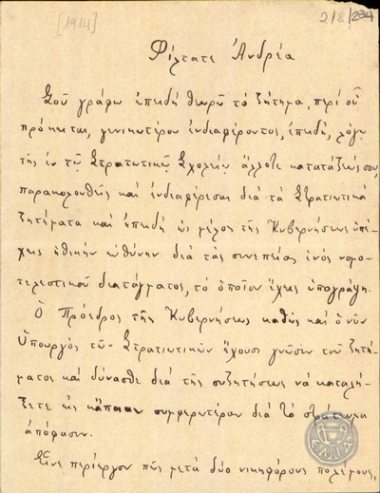 [1914]
2/8/234
Φίλτατε Ἀνδρέα
Σοῦ γράφω ἐπειδὴ θεωρῶ τὸ ζήτημα, περὶ οὗ
πρόκειται, γενικωτέρου ἐνδιαφέροντος, ἐπειδὴ, λόγῳ
τῆς ἐν τῇ Στρατιωτικῇ Σχολῇ ἄλλοτε κατατάξεώς σου
παρακολουθεῖς καὶ ἐνδιαφέρεσαι διὰ τὰ Στρατιωτικὰ
ζητήματα καὶ ἐπειδὴ ὡς μέλος τῆς Κυβερνήσεως ὑπέ-
χεις ἠθικὴν εὐθύνην διὰ τὰς συνεπείας ἑνὸς νομο-
τελεστικοῦ διατάγματος, τὸ ὁποῖον ἔχεις ὑπογράψῃ.
Ὁ Πρόεδρος τῆς Κυβερνήσεως καθὼς καὶ ὁ νῦν
Ὑπουργὸς τῶν Στρατιωτικῶν ἔχουσι γνῶσιν τοῦ ζητή-
ματος καὶ δύνασθε διὰ τῆς συζητήσεως νὰ καταλή-
ξετε εἰς κάποιαν συμφερωτέραν διὰ τὸ στράτευμα
ἀπόφασιν.
Εἶνε περίεργον πῶς μετὰ δύο νικηφόρους πολέμους,